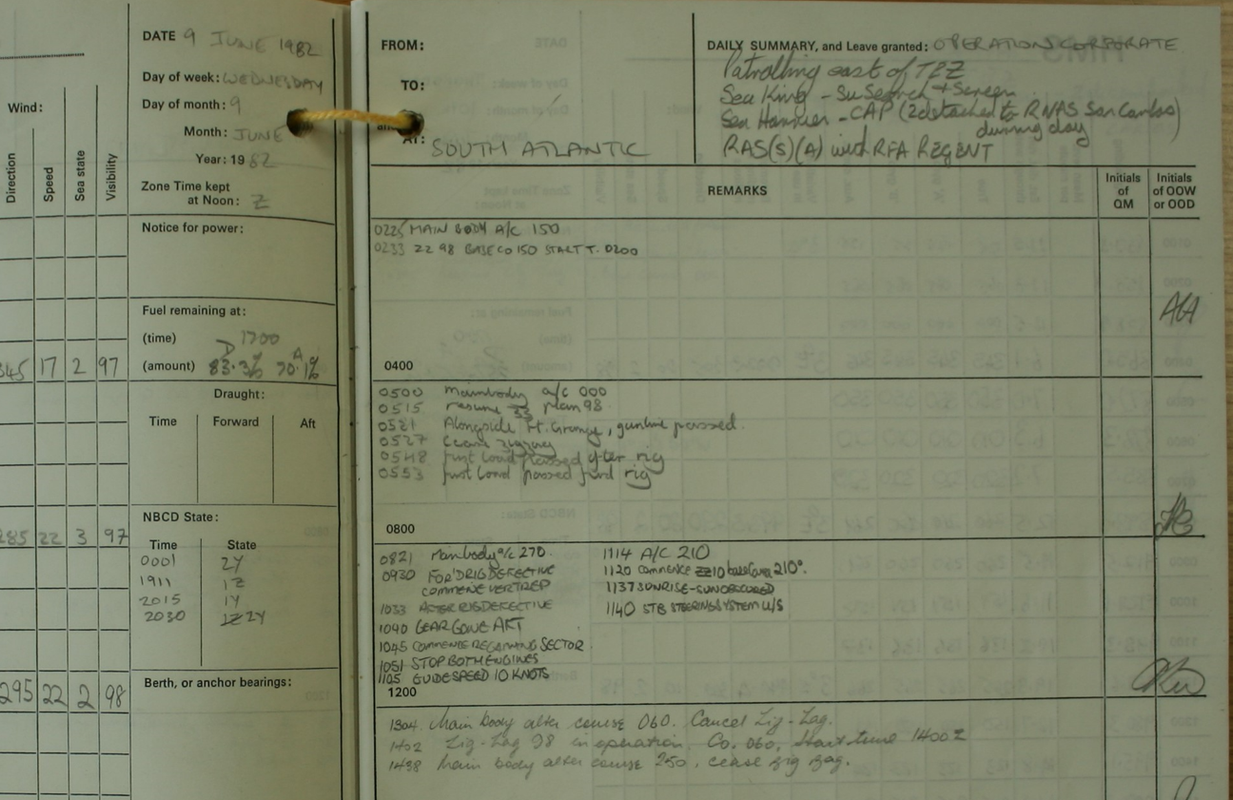 DATE 9 JUNE 1982
Day of week: WEDNESDAY
Day of month: 9
Month: JUNE
Year: 19 82
Zone Time kept
at Noon: Z
Wind:
Direction
Speed
Sea state
Visibility
Notice for power:
Fuel remaining at:
(time) 1700
(amount) D 83.3% A 70.1%
345 17 2 97
Draught:
Time Forward Aft
285 22 3 97
NBCD State:
Time State
0001 2Y
1911 1Z
2015 1Y
2030 2Y
295 22 2 98
Berth, or anchor bearings:
FROM:
TO:
AT: SOUTH ATLANTIC
DAILY SUMMARY, and Leave granted: OPERATION CORPORATE
Patrolling east of TEZ
Sea King - SuSearch + Screen
Sea Harrier - CAP (2 detached to RNAS San Carlos)
during day
RAS(S)(A) with RFA REGENT
REMARKS
Initials of QM
Initials of OOW or OOD
0225 MAIN BODY A/C 150
0233 ZZ 98 BASE CO 150 START T. 0200
0400
0500 Mainbody a/c 000
0515 resume ZZ plan 98
0521 Alongside Ft. Grange, gunline passed.
0527 Cease zigzag
0548 first load passed after rig
0553 first load passed fwd rig
0800
0821 Mainbody a/c 270.
0930 FOR'D RIG DEFECTIVE
COMMENCE VERTREP
1033 AFTER RIG DEFECTIVE
1040 GEAR GONE AFT
1045 COMMENCE REGAINING SECTOR
1051 STOP BOTH ENGINES
1105 GUIDE SPEED 10 KNOTS
1114 A/C 210
1120 COMMENCE ZZ10 base course 210°.
1137 SUNRISE - SUN OBSCURED
1140 STB STEERING SYSTEM U/S
1200
1304 Main body alter course 060. Cancel Zig-Zag.
1402 Zig-Zag 98 in operation. Co. 060, Start time 1400Z
1438 Main body alter course 250, cease zig zag.